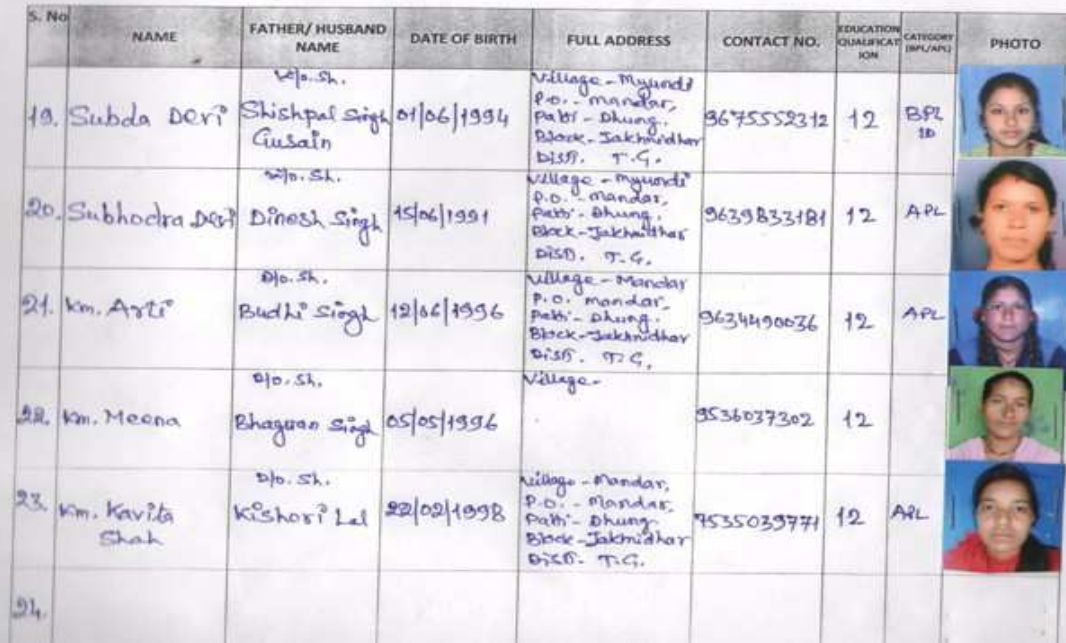 S. No
NAME
FATHER/ HUSBAND NAME
DATE OF BIRTH
FULL ADDRESS
CONTACT NO.
EDUCATION QUALIFICATION
CATEGORY (BPL/APL)
PHOTO
19. Subda Devi
W/o. Sh.
Shishpal Singh
Gusain
01/06/1994
Village - Myundi
P.O. - Mandar,
Patti - Dhung.
Block - Jakhnidhar
Distt. T.G.
9675552312
12
BPL
20. Subhodra Devi
W/o. Sh.
Dinesh Singh
15/06/1991
Village - Myundi
P.O. - Mandar,
Patti - Dhung.
Block - Jakhnidhar
Distt. T.G.
9639833181
12
APL
21. Km. Arti
D/o. Sh.
Budhi Singh
12/06/1996
Village - Mandar
P.O. Mandar,
Patti - Dhung.
Block - Jakhnidhar
Distt. T.G.
9634490036
12
APL
22. Km. Meena
D/o. Sh.
Bhagwan Singh
05/05/1996
Village -
9536037302
12
23. Km. Kavita
Shah
D/o. Sh.
Kishori Lal
22/02/1998
Village - Mandar,
P.O. - Mandar,
Patti - Dhung
Block - Jakhnidhar
Distt. T.G.
7535039771
12
APL
24.